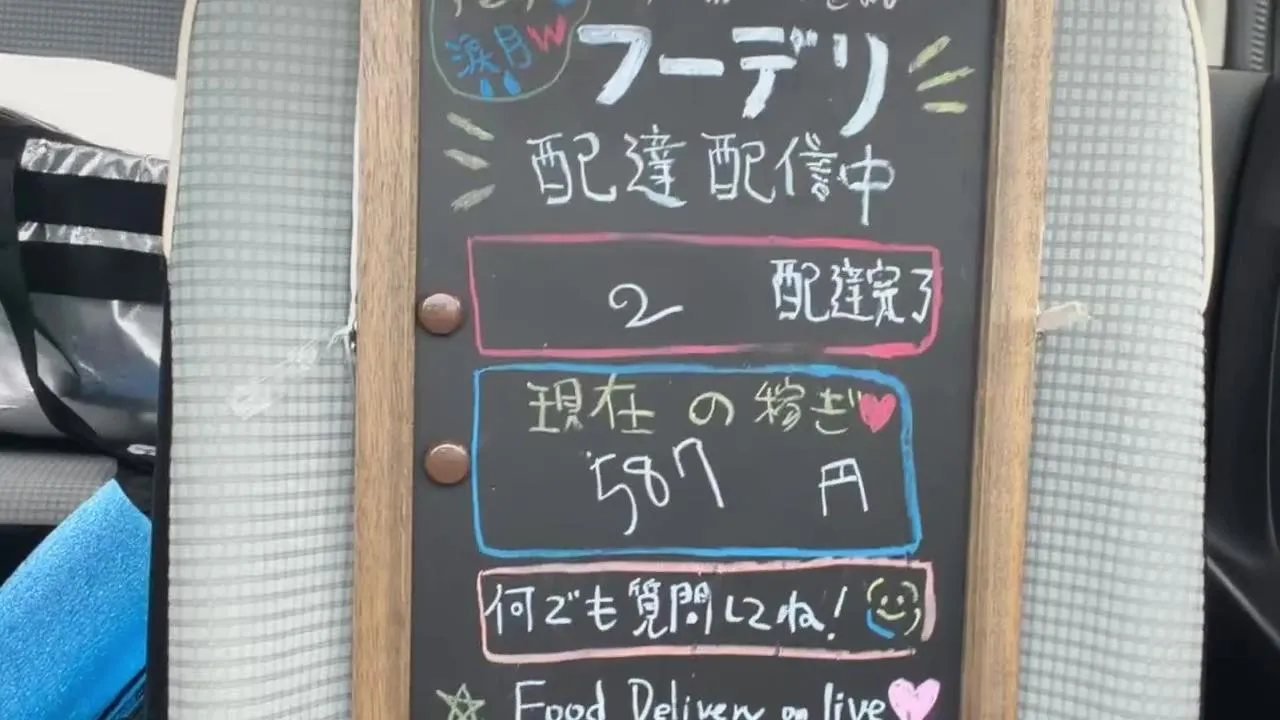 涙月w
フーデリ
配達配信中
2 配達完了
現在の稼ぎ
587 円
何でも質問してね!
Food Delivery on live